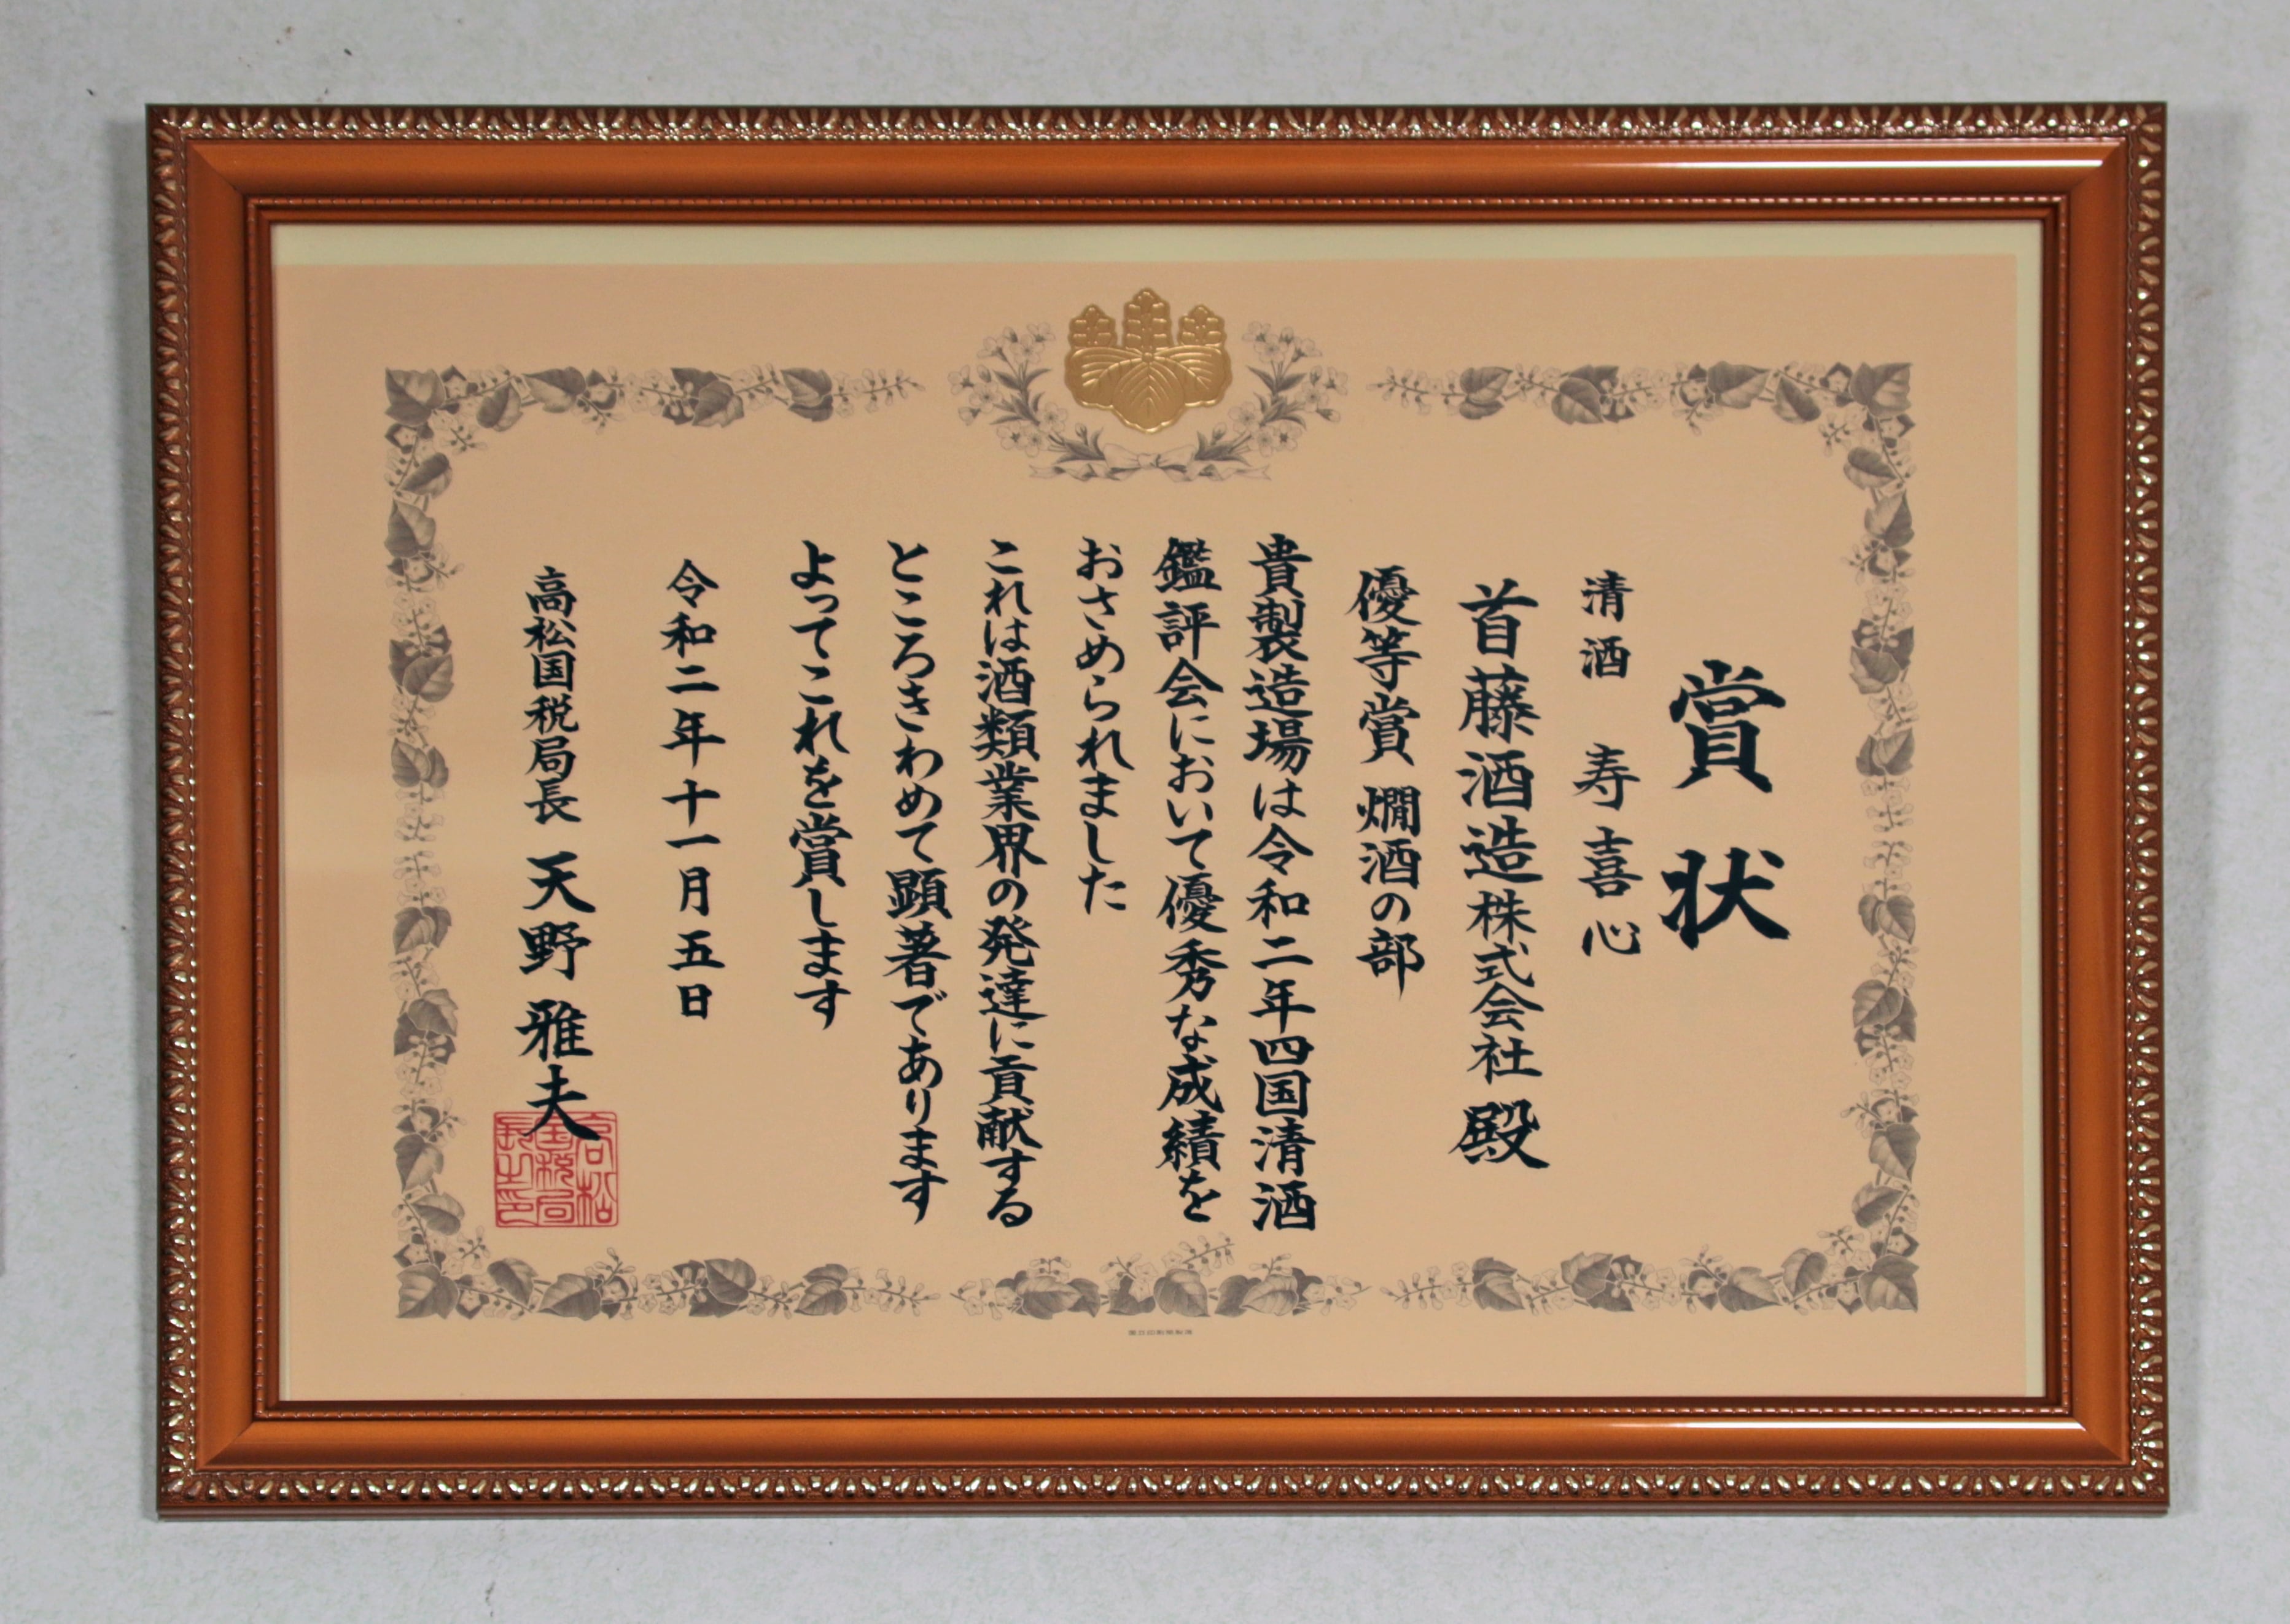 賞状
清酒 寿喜心
首藤酒造株式会社 殿
優等賞 燗酒の部
貴製造場は令和二年四国清酒
鑑評会において優秀な成績を
おさめられました
これは酒類業界の発達に貢献する
ところきわめて顕著であります
よってこれを賞します
令和二年十一月五日
高松国税局長 天野雅夫
高松
国税局
長之印